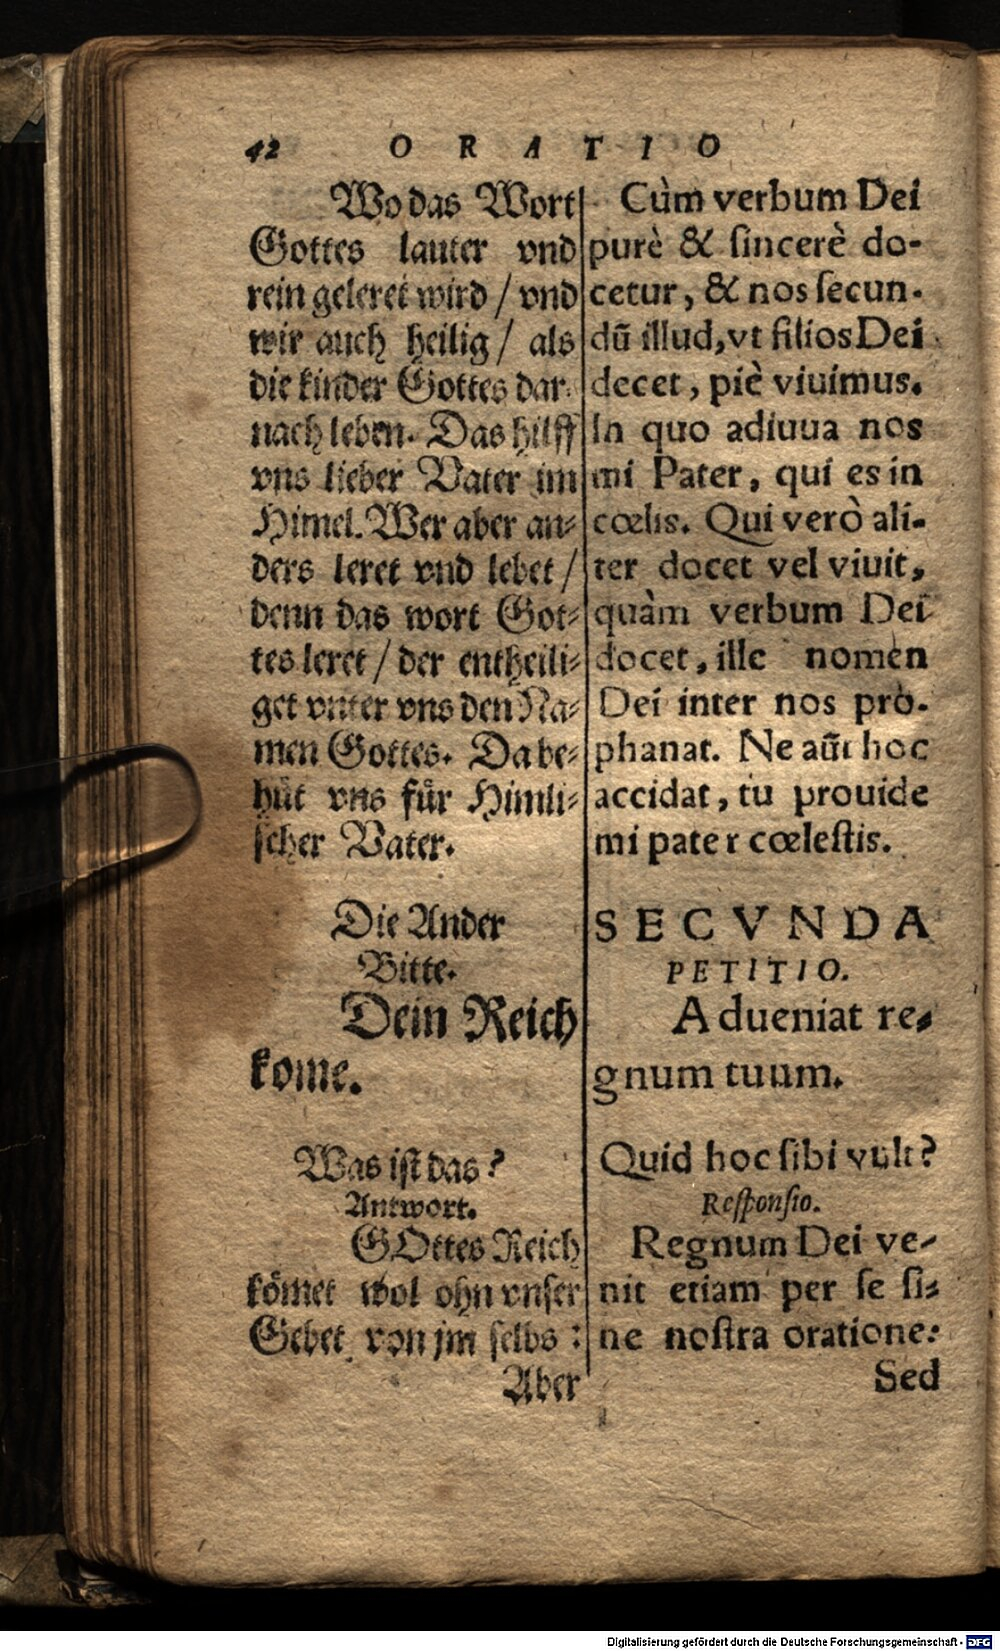 42 ORATIO
Wo das Wort
Gottes lauter vnd
rein geleret wird / vnd
wir auch heilig / als
die kinder Gottes dar-
nach leben. Das hilff
vns lieber Vater im
Himel. Wer aber an-
ders leret vnd lebet /
denn das wort Got-
tes leret / der entheili-
get vnter vns den Na-
men Gottes. Da be-
hüt vns für Himli-
scher Vater.
Die Ander
Bitte.
Dein Reich
kome.
Was ist das?
Antwort.
GOttes Reich
kömet wol ohn vnser
Gebet von jm selbs :
Aber
Cùm verbum Dei
purè & ſincerè do-
cetur, & nos ſecun-
dũ illud, vt filios Dei
decet, piè viuimus.
In quo adiuua nos
mi Pater, qui es in
cœlis. Qui verò ali-
ter docet vel viuit,
quàm verbum Dei
docet, ille nomen
Dei inter nos pro-
phanat. Ne aũt hoc
accidat, tu prouide
mi pater cœleſtis.
SECVNDA
PETITIO.
Adueniat re-
gnum tuum.
Quid hoc ſibi vult?
Reſponſio.
Regnum Dei ve-
nit etiam per ſe ſi-
ne noſtra oratione:
Sed
Digitalisierung gefördert durch die Deutsche Forschungsgemeinschaft - DFG